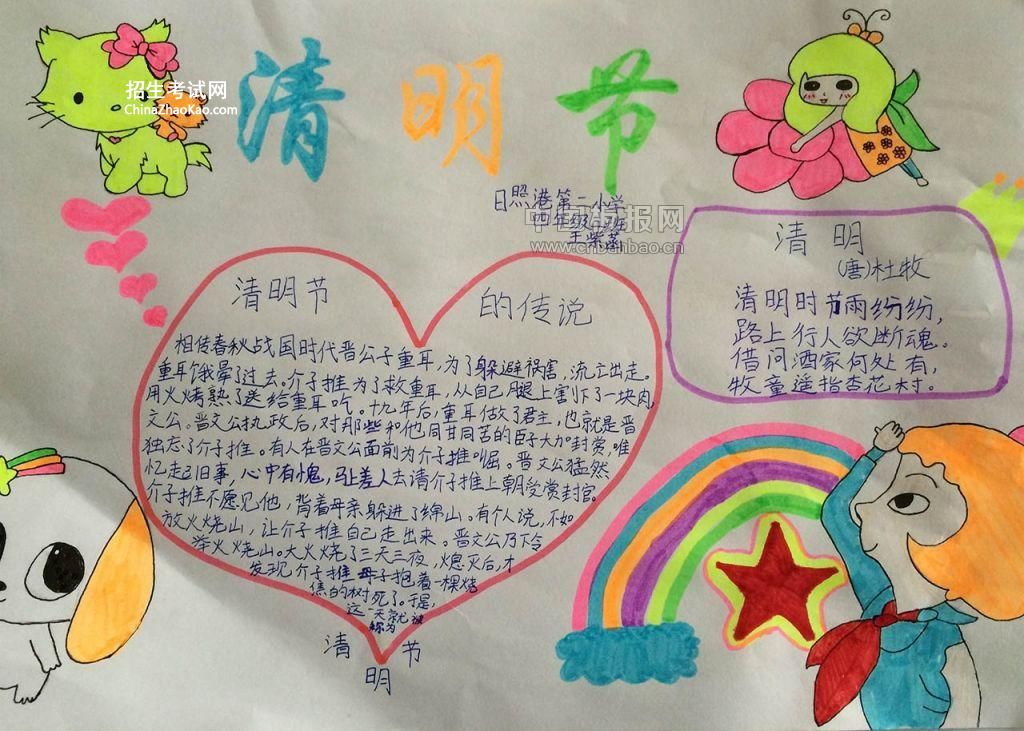 招生考试网
ChinaZhaoKao.com
清明节
日照港第二小学
四年级
王紫
www.cnbanbao.cn
清明
(唐)杜牧
清明时节雨纷纷,
路上行人欲断魂。
借问酒家何处有,
牧童遥指杏花村。
清明节 的传说
相传春秋战国时代晋公子重耳,为了躲避祸害,流亡出走。
重耳饿晕了过去。介子推为了救重耳,从自己腿上割下了一块肉,
用火烤熟了送给重耳吃。十九年后,重耳做了君主,也就是晋
文公。晋文公执政后,对那些和他同甘同苦的臣子大加封赏,唯
独忘了介子推。有人在晋文公面前为介子推叫屈。晋文公猛然
忆起旧事,心中有愧,马上差人去请介子推上朝受赏封官。
介子推不愿见他,背着母亲躲进了绵山。有个人说,不如
放火烧山,让介子推自己走出来。晋文公乃下令
举火烧山。大火烧了三天三夜,熄灭后,才
发现介子推母子抱着一棵烧
焦的树死了。于是,
这一天就被
称为
清明节